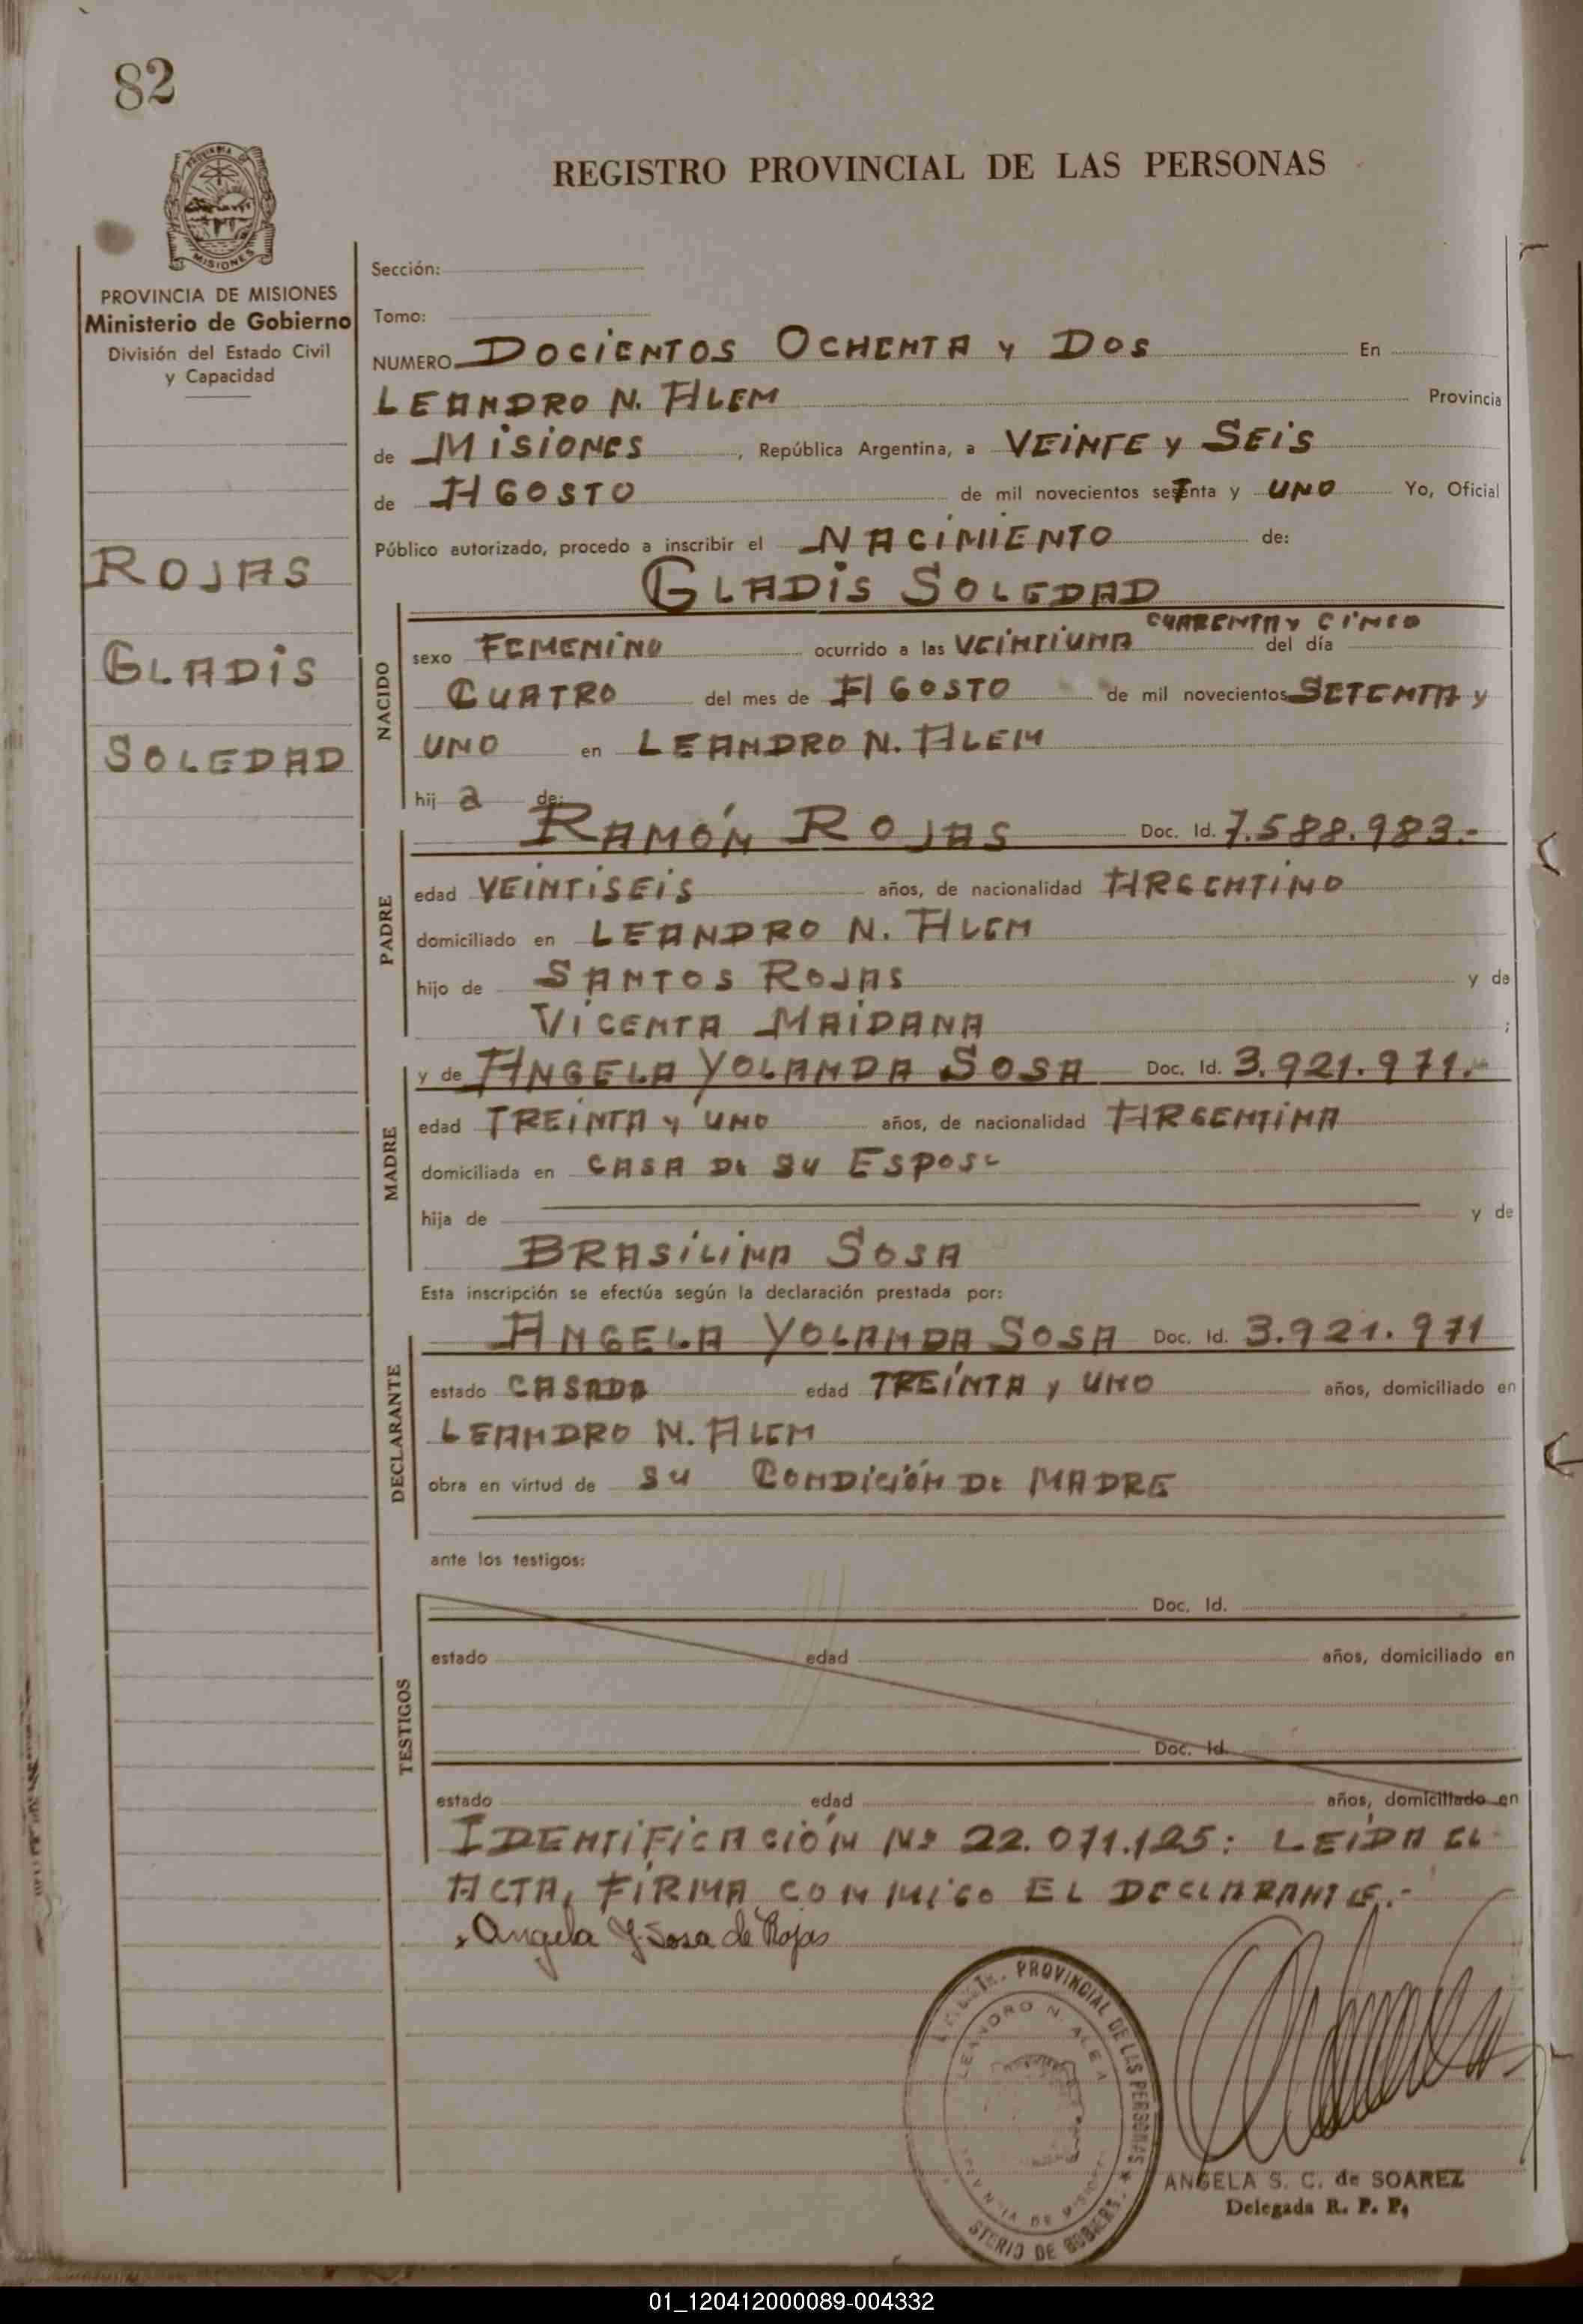 82
REGISTRO PROVINCIAL DE LAS PERSONAS
PROVINCIA DE MISIONES
PROVINCIA DE MISIONES
Ministerio de Gobierno
División del Estado Civil
y Capacidad
ROJAS
GLADIS
SOLEDAD
Sección:
Tomo:
NUMERO DOCIENTOS OCHENTA y DOS En
LEANDRO N. ALEM Provincia
de MISIONES, República Argentina, a VEINTE y SEIS
de AGOSTO de mil novecientos setenta y UNO Yo, Oficial
Público autorizado, procedo a inscribir el NACIMIENTO de:
GLADIS SOLEDAD
NACIDO
sexo FEMENINO ocurrido a las VEINTIUNA CUARENTA y CINCO del día
CUATRO del mes de AGOSTO de mil novecientos SETENTA y
UNO en LEANDRO N. ALEM
hij a de:
PADRE
RAMÓN ROJAS Doc. Id. 7.588.983.-
edad VEINTISEIS años, de nacionalidad ARGENTINO
domiciliado en LEANDRO N. ALEM
hijo de SANTOS ROJAS y de
VICENTA MAIDANA ;
MADRE
y de ANGELA YOLANDA SOSA Doc. Id. 3.921.971.-
edad TREINTA y UNO años, de nacionalidad ARGENTINA
domiciliada en CASA DE SU ESPOSO
hija de y de
BRASILINA SOSA
Esta inscripción se efectúa según la declaración prestada por:
DECLARANTE
ANGELA YOLANDA SOSA Doc. Id. 3.921.971
estado CASADA edad TREINTA y UNO años, domiciliado en
LEANDRO N. ALEM
obra en virtud de SU CONDICIÓN DE MADRE
ante los testigos:
TESTIGOS
Doc. Id.
estado edad años, domiciliado en
Doc. Id.
estado edad años, domiciliado en
IDENTIFICACIÓN Nº 22.071.125: LEIDA EL
ACTA, FIRMA CONMIGO EL DECLARANTE.-
Angela Y. Sosa de Rojas
PROVINCIAL DE LAS PERSONAS
LEANDRO N. ALEM
DE MISIONES
ANGELA S. C. de SOAREZ
Delegada R. P. P.
01_120412000089-004332